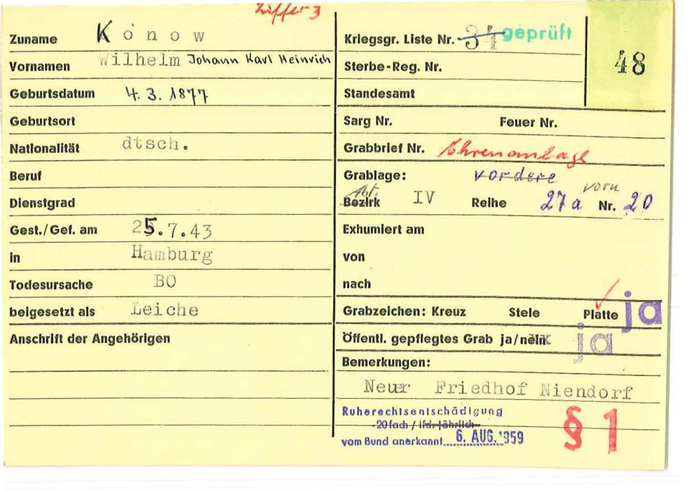 Ziffer 3
Zuname Konow
Vornamen Wilhelm Johann Karl Heinrich
Geburtsdatum 4. 3. 1877
Geburtsort
Nationalität dtsch.
Beruf
Dienstgrad
Gest./Gef. am 25.7.43
in Hamburg
Todesursache BO
beigesetzt als Leiche
Anschrift der Angehörigen
Kriegsgr. Liste Nr. 34 geprüft
48
Sterbe-Reg. Nr.
Standesamt
Sarg Nr. Feuer Nr.
Grabbrief Nr. Ehrenanlage
Grablage: vordere
Abt. vorn
Bezirk IV Reihe 27a Nr. 20
Exhumiert am
von
nach
Grabzeichen: Kreuz Stele Platte ja
Öffentl. gepflegtes Grab ja/nein ja
Bemerkungen:
Neuer Friedhof Niendorf
Ruherechtsentschädigung
-20fach / lfd. jährlich-
vom Bund anerkannt 6. AUG. 1959
§ 1